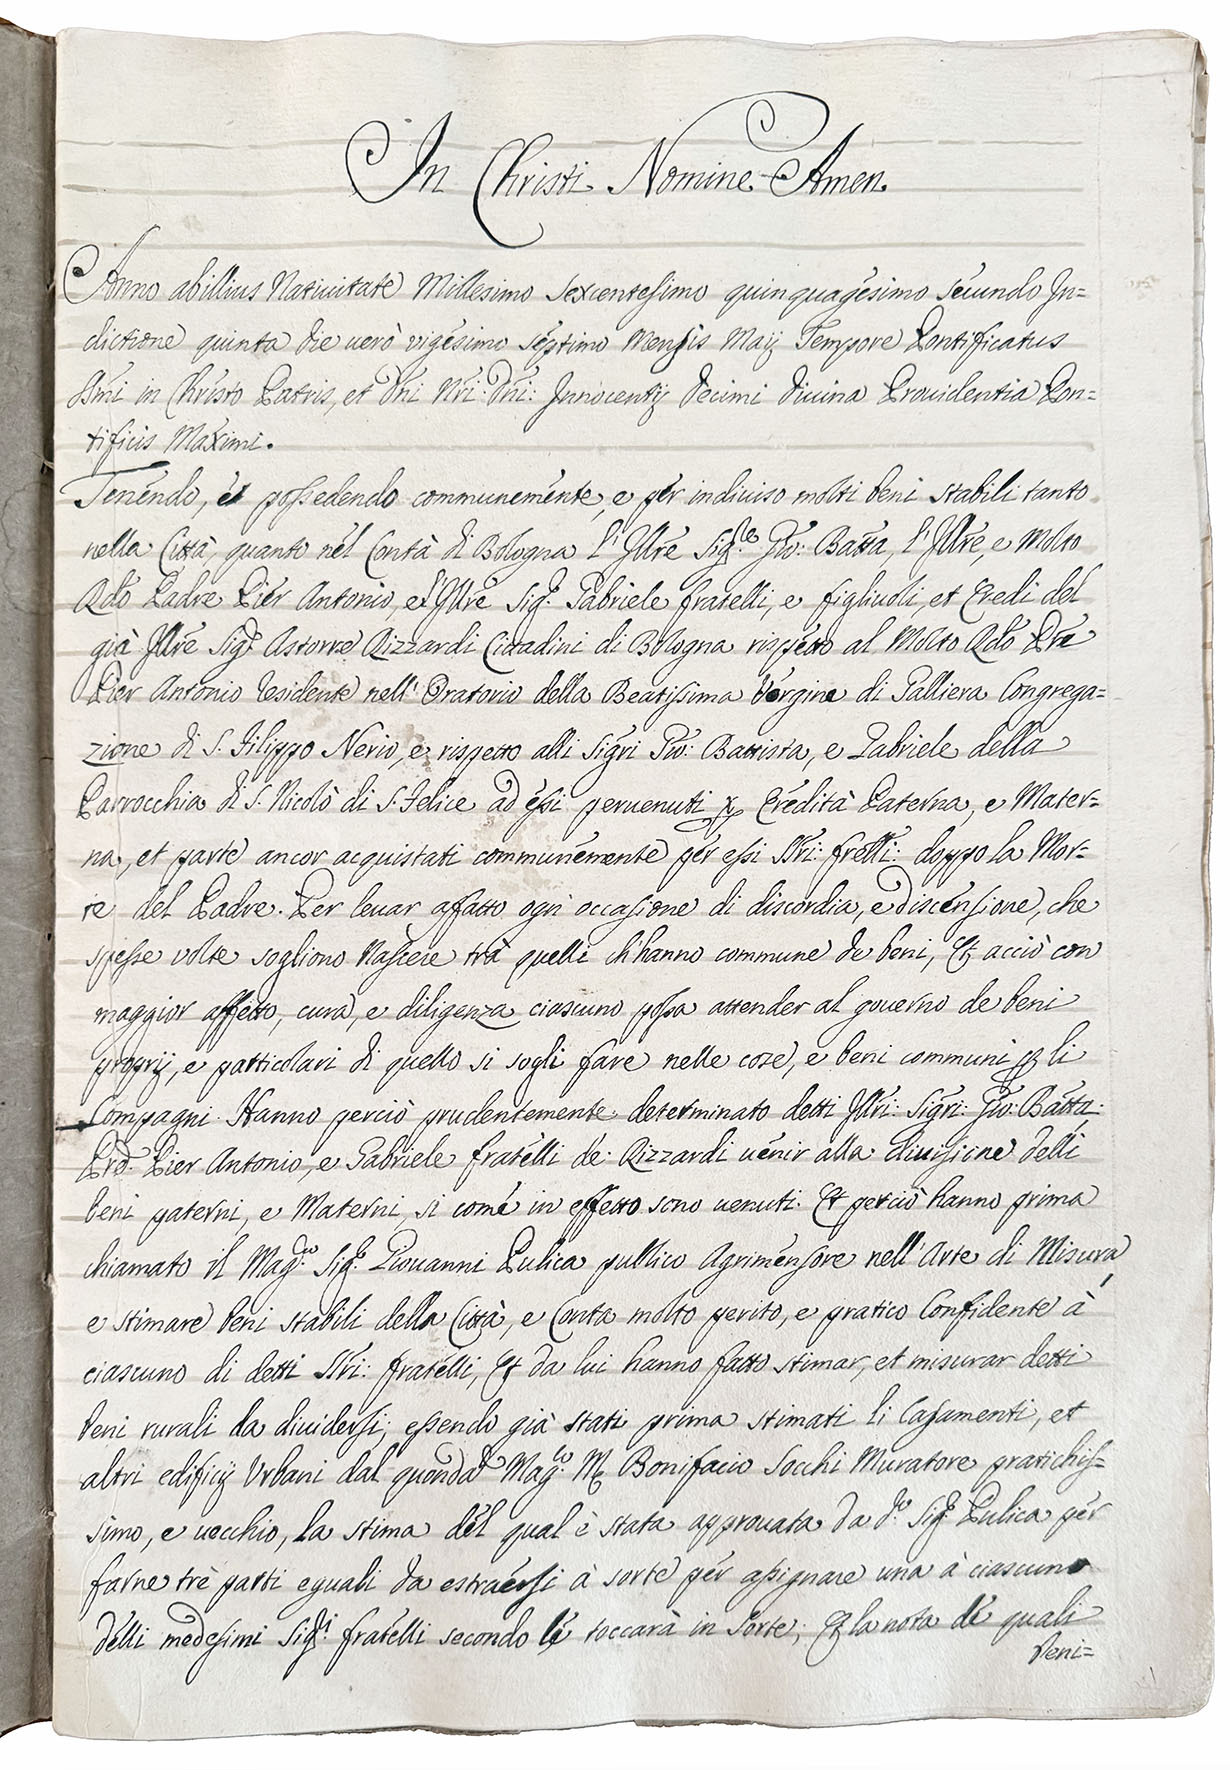 In Christi Nomine Amen.
Anno abillius Natiuitate Millesimo sexcentesimo quinquagesimo secundo In=
dictione quinta die uerò vigesimo septimo Mensis Maij Tempore Pontificatus
SSmi in Christo Patris, et Dni Nri: Dni: Innocentij Decimi diuina Prouidentia Pon=
tificis Maximi.
Tenendo, et possedendo communemente, e per indiuiso molti beni stabili tanto
nella Città, quanto nel Contà di Bologna l'Illre Sig.re Gio: Batta, l'Illre, e Molto
Rdo Padre Pier Antonio, e l'Illre Sig.r Gabriele fratelli, e figliuoli, et Eredi del
già Illre Sig.r Astorre Rizzardi Cittadini di Bologna rispetto al Molto Rdo Pre
Pier Antonio residente nell'Oratorio della Beatissima Vergine di Galliera Congrega=
zione di S. Filippo Nerio, e rispetto alli Sigri Gio: Battista, e Gabriele della
Parrocchia di S. Nicolò di S. Felice ad essi peruenuti p Eredità Paterna, e Mater=
na, et parte ancor acquistati communemente per essi SSri: frelli: doppo la Mor=
te del Padre. Per leuar affatto ogni occasione di discordia, e discensione, che
spesse volte sogliono Nascere trà quelli ch'hanno commune de beni, Et acciò con
maggior affetto, cura, e diligenza ciascuno possa attender al gouerno de beni
proprij, e particolari di quello si sogli fare nelle cose, e beni communi p li
Compagni. Hanno perciò prudentemente determinato detti Illri: Sigri: Gio: Batta:
Prd. Pier Antonio, e Gabriele fratelli de: Rizzardi uenir alla diuisione delli
beni paterni, e Materni, si come in effetto sono uenuti. Et perciò hanno prima
chiamato il Mag.co Sig.r Giouanni Pulica publico Agrimensore nell'Arte di Misura
e stimare beni stabili della Città, e Conta molto perito, e pratico Confidente à
ciascuno di detti SSri: fratelli, Et da lui hanno fatto stimar, et misurar detti
beni rurali da diuidersi; essendo già stati prima stimati li Casamenti, et
altri edificij Urbani dal quonda Mag.co M. Bonifacio Socchi Muratore pratichis=
simo, e uecchio, la stima del qual è stata approuata da d.o Sig.r Pulica per
farne trè parti eguali da estraersi à sorte per assignare una à ciascuno
delli medesimi Sig.ri fratelli secondo le toccarà in sorte; Et la nota de quali
beni=